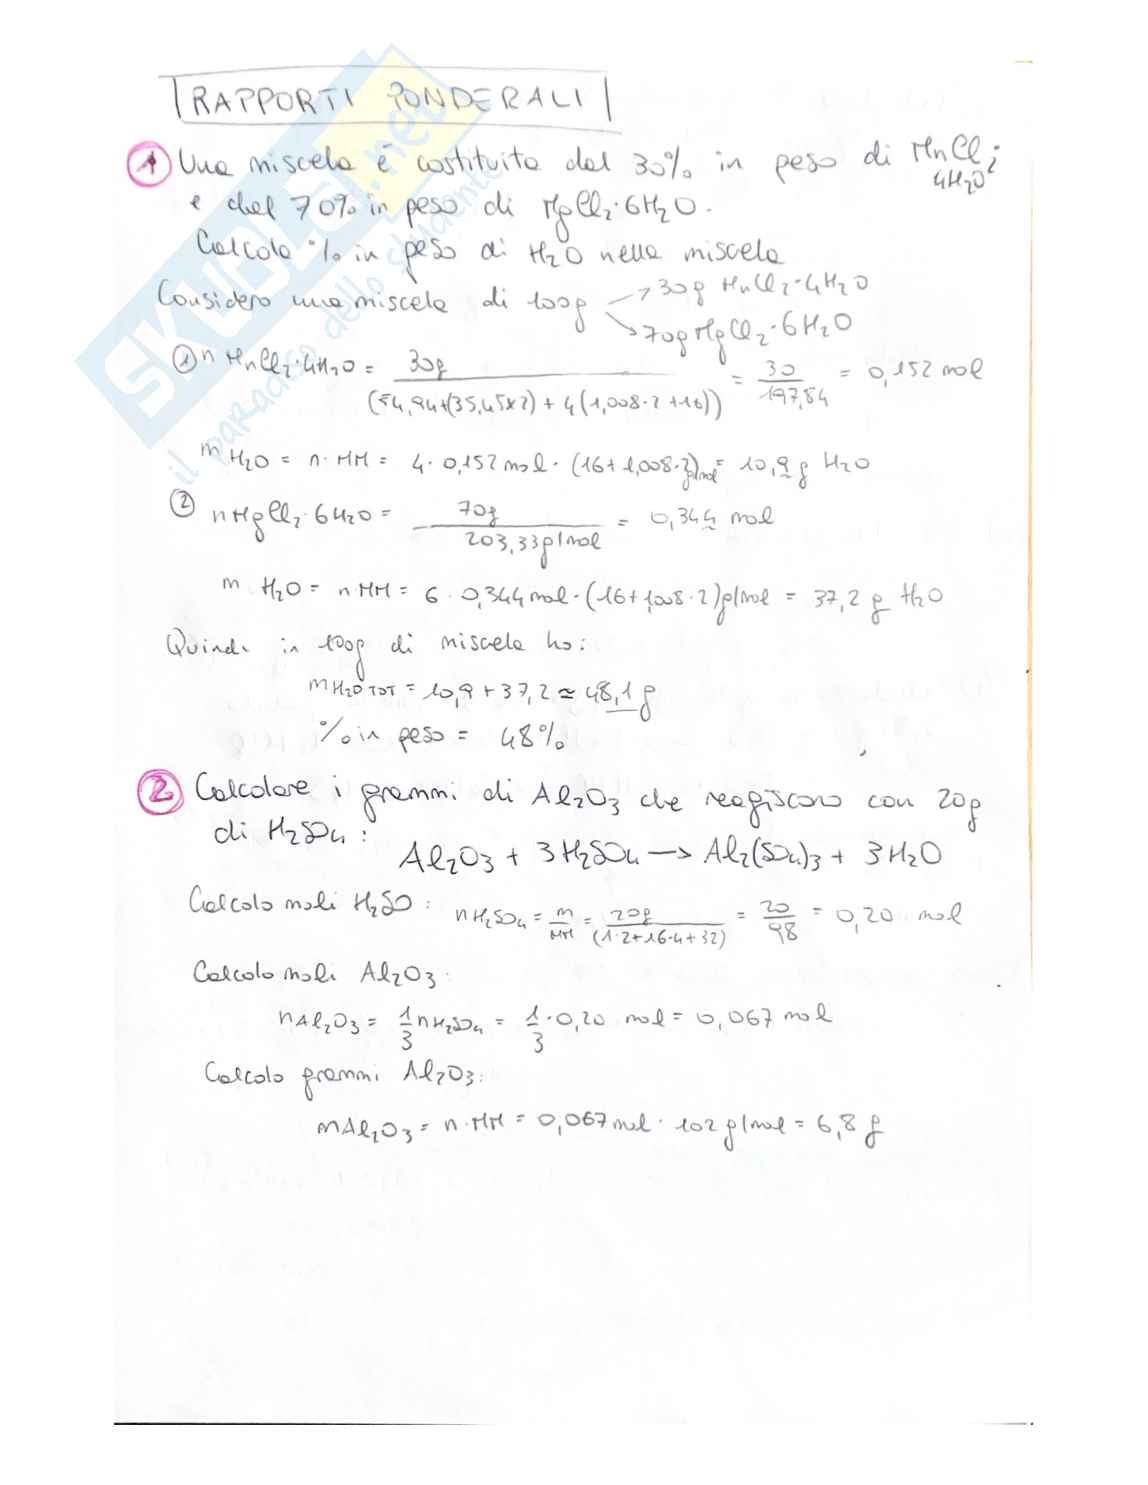 RAPPORTI PONDERALI
1 Una miscela è costituita dal 30% in peso di MnCl2·
4H2O
e dal 70% in peso di MgCl2·6H2O.
Calcola % in peso di H2O nella miscela
Considero una miscela di 100g → 30g MnCl2·4H2O
→ 70g MgCl2·6H2O
1 n MnCl2·4H2O = 30g / (54,94+(35,45×2)+4(1,008·2+16)) = 30/197,84 = 0,152 mol
m H2O = n·MM = 4·0,152 mol·(16+1,008·2)g/mol = 10,9 g H2O
2 n MgCl2·6H2O = 70g / 203,33 g/mol = 0,344 mol
m H2O = n·MM = 6·0,344 mol·(16+1,008·2)g/mol = 37,2 g H2O
Quindi in 100g di miscela ho:
m H2O TOT = 10,9+37,2 ≈ 48,1 g
% in peso = 48%
2 Calcolare i grammi di Al2O3 che reagiscono con 20g
di H2SO4:
Al2O3 + 3H2SO4 → Al2(SO4)3 + 3H2O
Calcolo moli H2SO: nH2SO4 = m/MM = 20g/(1·2+16·4+32) = 20/98 = 0,20 mol
Calcolo moli Al2O3:
nAl2O3 = 1/3 nH2SO4 = 1/3·0,20 mol = 0,067 mol
Calcolo grammi Al2O3:
mAl2O3 = n·MM = 0,067 mol·102 g/mol = 6,8 g
SKUOLA.net
il paradiso dello studente